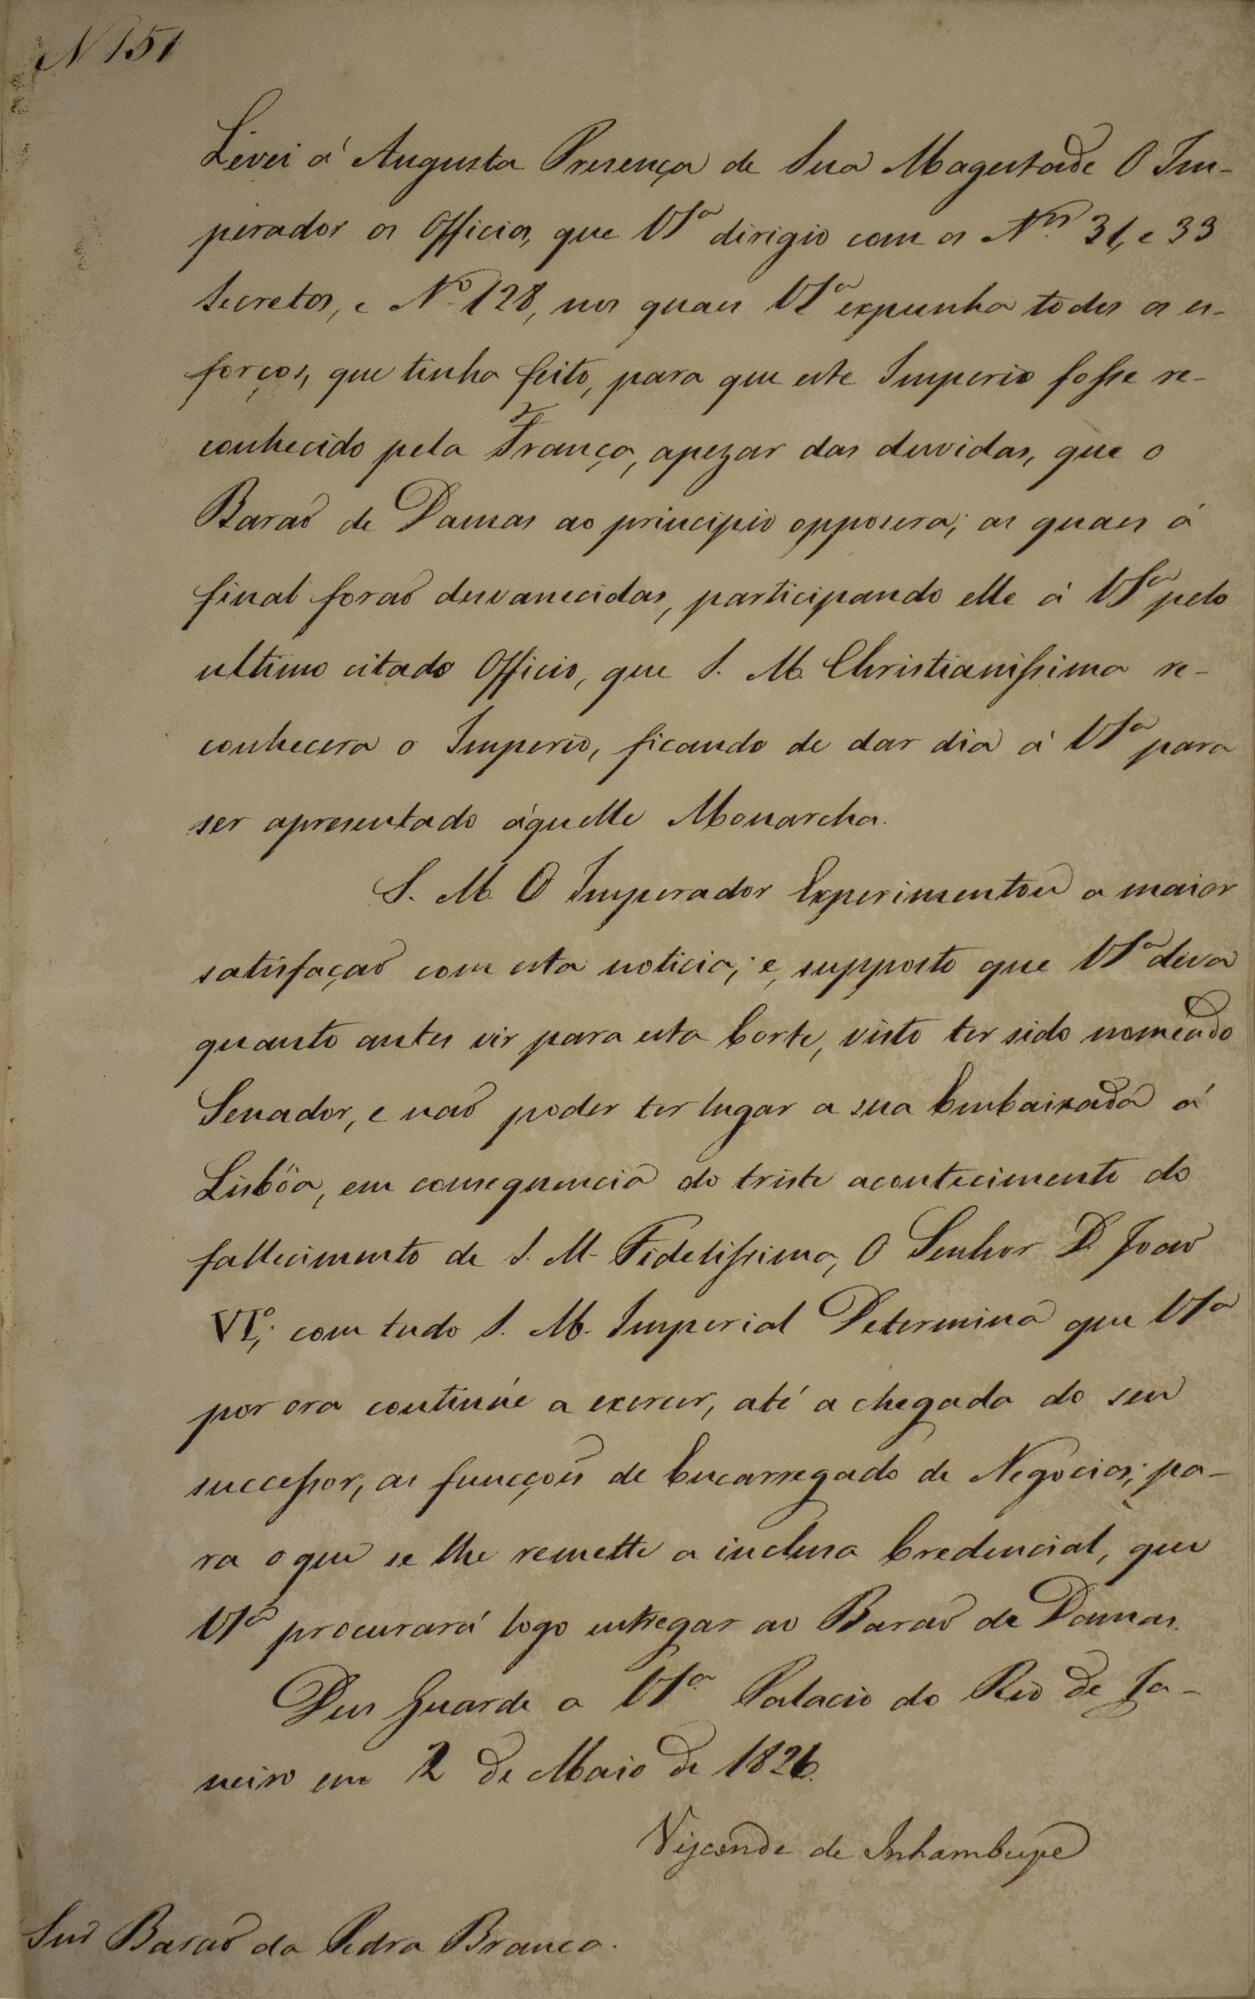 N 151
Levei á Augusta Presença de Sua Magestade O Im-
perador os Officios, que VSª dirigio com os Nos. 31, e 33
Secretos, e Nº 128, nos quaes VSª expunha todos os es-
forços, que tinha feito, para que este Imperio fosse re-
conhecido pela França, apezar das duvidas, que o
Barão de Damas ao principio oppozera; as quaes á
final forão desvanecidas, participando elle á VSª pelo
ultimo citado Officio, que S. M. Christianissima re-
conhecera o Imperio, ficando de dar dia á VSª para
ser apresentado áquelle Monarcha.
S. M. O Imperador Experimentou a maior
satisfação com esta noticia; e, supposto que VSª deva
quanto antes vir para esta Corte, visto ter sido nomeado
Senador, e não poder ter lugar a sua Embaixada á
Lisbôa, em consequencia do triste acontecimento do
fallecimento de S. M. Fidelissima, O Senhor D. João
VIº; com tudo S. M. Imperial Determina que VSª
por ora continúe a exercer, até a chegada do seu
successor, as funcções de Encarregado de Negocios; pa-
ra o que se lhe remette a inclusa Credencial, que
VSª procurará logo entregar ao Barão de Damas.
Deus Guarde a VSª Palacio do Rio de Ja-
neiro em 2 de Maio de 1826.
Visconde de Inhambupe
Snr Barão da Pedra Branca.